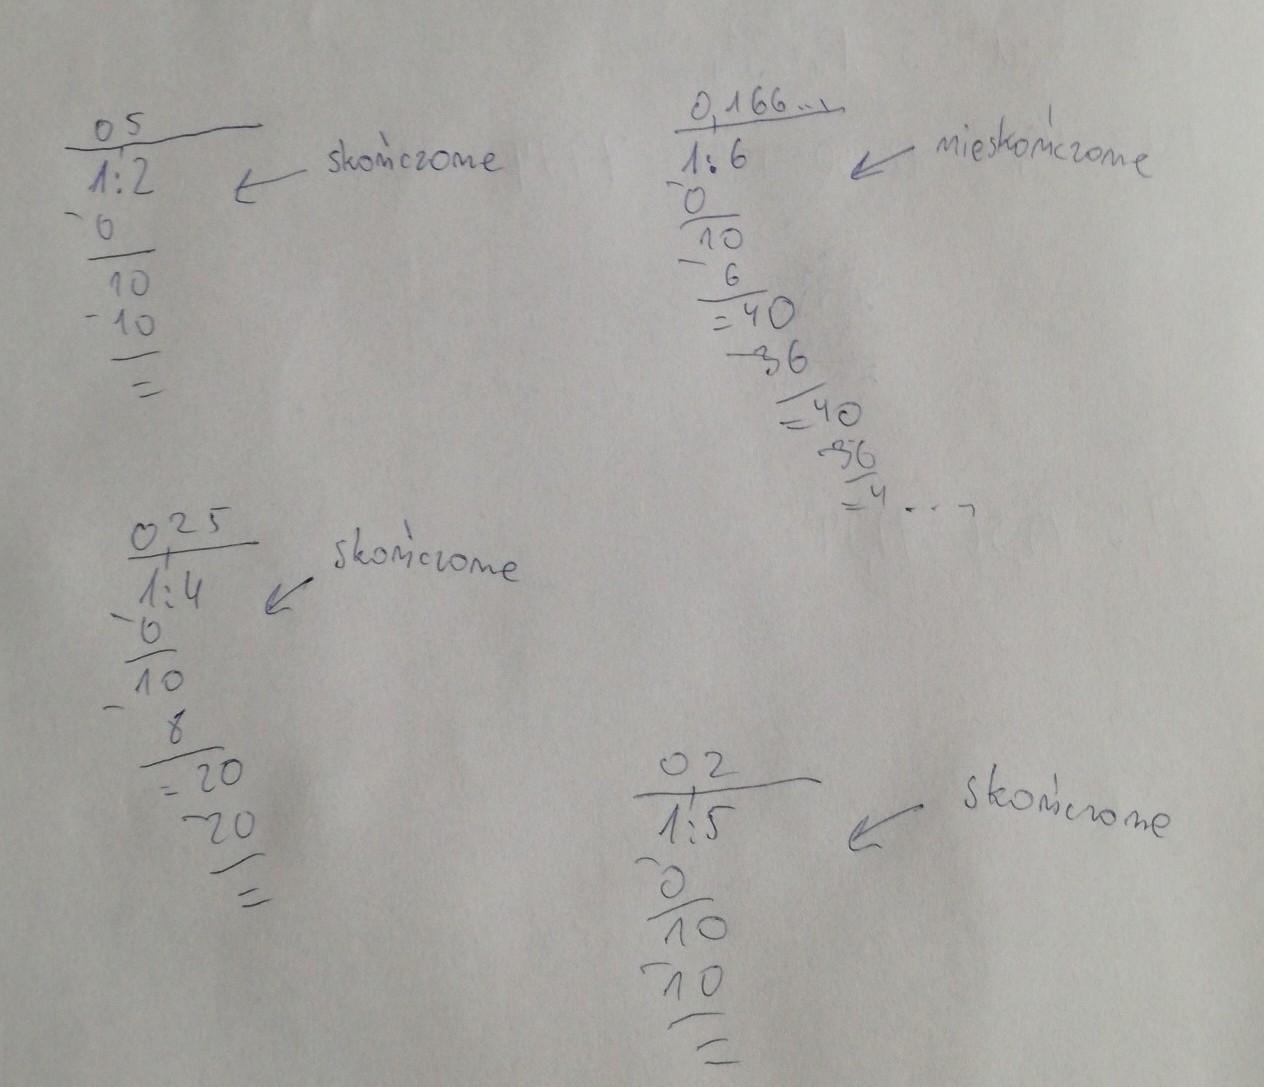 0,5
1:2
-0
10
-10
=
skończone
0,166...
1:6
-0
10
- 6
=40
-36
=40
-36
=4...
nieskończone
0,25
1:4
-0
10
- 8
=20
-20
=
skończone
0,2
1:5
-0
10
-10
=
skończone